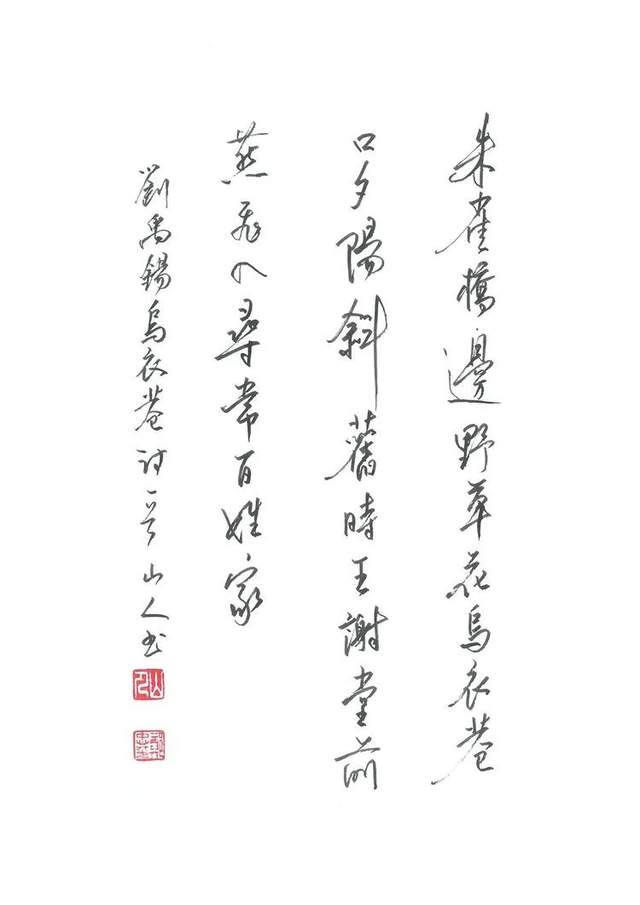 朱雀橋邊野草花烏衣巷
口夕陽斜舊時王謝堂前
燕飛入尋常百姓家
劉禹錫烏衣巷詩山人書
山人